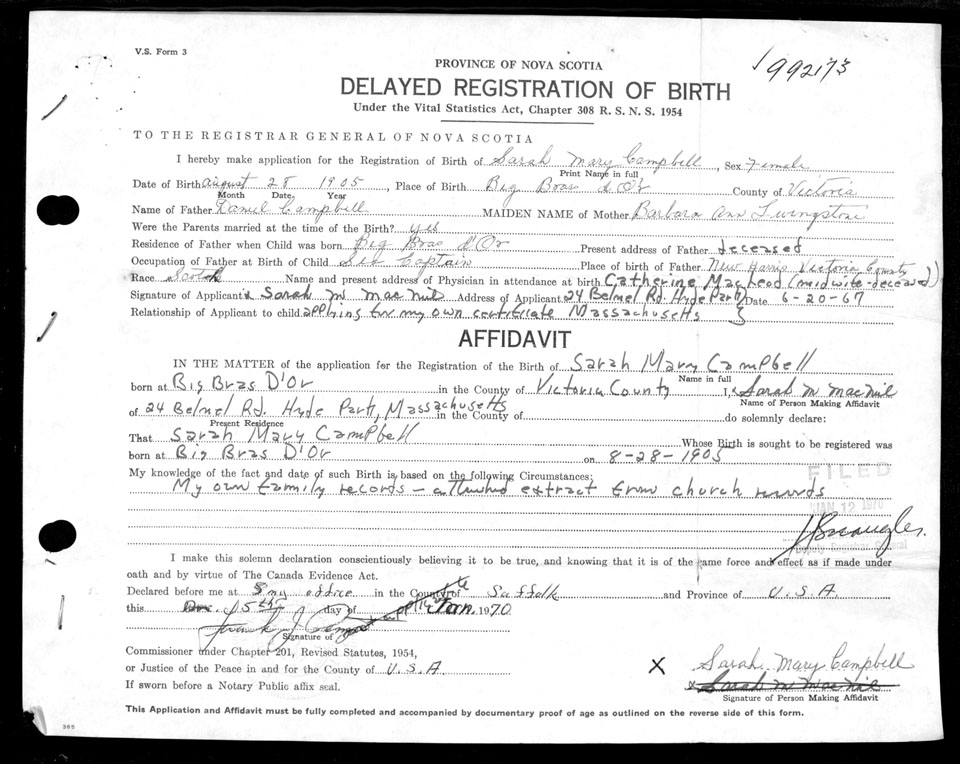 V.S. Form 3
199217 3
PROVINCE OF NOVA SCOTIA
DELAYED REGISTRATION OF BIRTH
Under the Vital Statistics Act, Chapter 308 R. S. N. S. 1954
TO THE REGISTRAR GENERAL OF NOVA SCOTIA
I hereby make application for the Registration of Birth of Sarah Mary Campbell, Sex Female
Print Name in full
Date of Birth August 28 1905, Place of Birth Big Bras d'Or County of Victoria
Month Date, Year
Name of Father Daniel Campbell MAIDEN NAME of Mother Barbara Ann Livingstone
Were the Parents married at the time of the Birth? yes
Residence of Father when Child was born Big Bras d'Or Present address of Father deceased
Occupation of Father at Birth of Child Sea Captain Place of birth of Father New Harris Victoria County
Race Scotch Name and present address of Physician in attendance at birth Catherine MacLeod (midwife-deceased)
Signature of Applicant x Sarah M MacNeil Address of Applicant 24 Belnel Rd. Hyde Park Date 6-20-67
Relationship of Applicant to child applying for my own certificate Massachusetts
AFFIDAVIT
IN THE MATTER of the application for the Registration of the Birth of Sarah Mary Campbell
Name in full
born at Big Bras D'Or in the County of Victoria County I, x Sarah M MacNeil
Name of Person Making Affidavit
of 24 Belnel Rd. Hyde Park, Massachusetts in the County of do solemnly declare:
Present Residence
That Sarah Mary Campbell Whose Birth is sought to be registered was
born at Big Bras D'Or on 8-28-1905
My knowledge of the fact and date of such Birth is based on the following Circumstances:
My own family records - attached extract from church records
FILED
JAN 12 1970
Deputy Registrar General
I make this solemn declaration conscientiously believing it to be true, and knowing that it is of the same force and effect as if made under
oath and by virtue of The Canada Evidence Act.
Declared before me at my office in the County of Suffolk and Province of U.S.A
this 5th day of Jan. 1970
Signature of
Commissioner under Chapter 201, Revised Statutes, 1954,
or Justice of the Peace in and for the County of U.S.A
If sworn before a Notary Public affix seal.
X Sarah Mary Campbell
x Sarah M MacNeil
Signature of Person Making Affidavit
This Application and Affidavit must be fully completed and accompanied by documentary proof of age as outlined on the reverse side of this form.
385